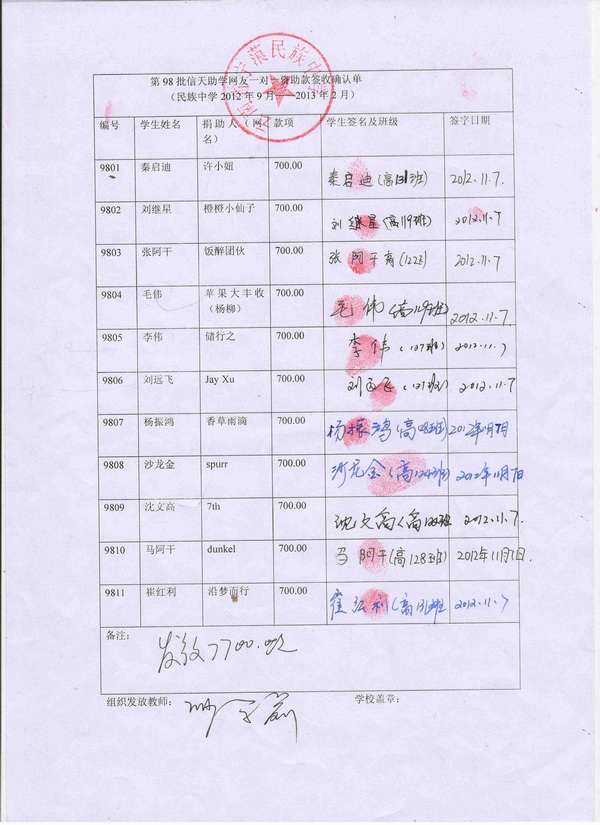 第 98 批信天助学网友一对一资助款签收确认单
（民族中学 2012 年 9 月——2013 年 2 月）
编号 学生姓名 捐助人（网名） 款项 学生签名及班级 签字日期
9801 秦启迪 许小姐 700.00 秦启迪(高131班) 2012.11.7.
9802 刘继星 橙橙小仙子 700.00 刘继星(高119班) 2012.11.7
9803 张阿干 饭醉团伙 700.00 张阿干高(122班) 2012.11.7
9804 毛伟 苹果大丰收（杨柳） 700.00 毛伟(高129班) 2012.11.7.
9805 李伟 储行之 700.00 李伟(127班) 2012.11.7
9806 刘远飞 Jay Xu 700.00 刘远飞(121班) 2012.11.7
9807 杨振鸿 香草雨滴 700.00 杨振鸿(高128班) 2012年11月7日
9808 沙龙金 spurr 700.00 沙龙金(高124班) 2012年11月7日
9809 沈文高 7th 700.00 沈文高(高122班 2012.11.7.
9810 马阿干 dunkel 700.00 马阿干(高128班) 2012年11月7日.
9811 崔红利 沿梦而行 700.00 崔红利(高131班 2012.11.7
备注：
发放7700.00元
组织发放教师： 学校盖章：